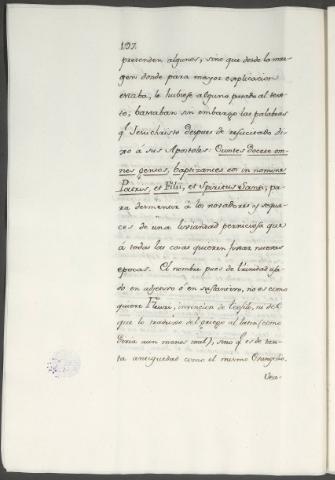 197.
pretenden algunos; sino que desde la mar-
gen donde para mayor explicacion
estaba, le hubiese alguno pasado al tex-
to; bastaban sin embargo las palabras
q.e Jesuchristo despues de resucitado di-
xo a sus Apostoles: Euntes docete om-
nes gentes, baptizantes eos in nomine
Patris, et Filii, et Spiritus Sancti, pa-
ra desmentir á los novadores y sequa-
ces de una liviandad perniciosa que
á todas las cosas quieren fixar nuevas
epocas. El nombre pues de Trinidad usa-
do en adjetivo ó en sustantivo, no es como
quiere Fleuri, invencion de Teofilo, ni del
que lo traduxo del griego al latin (como
diria aun menos mal), sino q.e es de tan-
ta antiguedad como el mismo Evangelio.